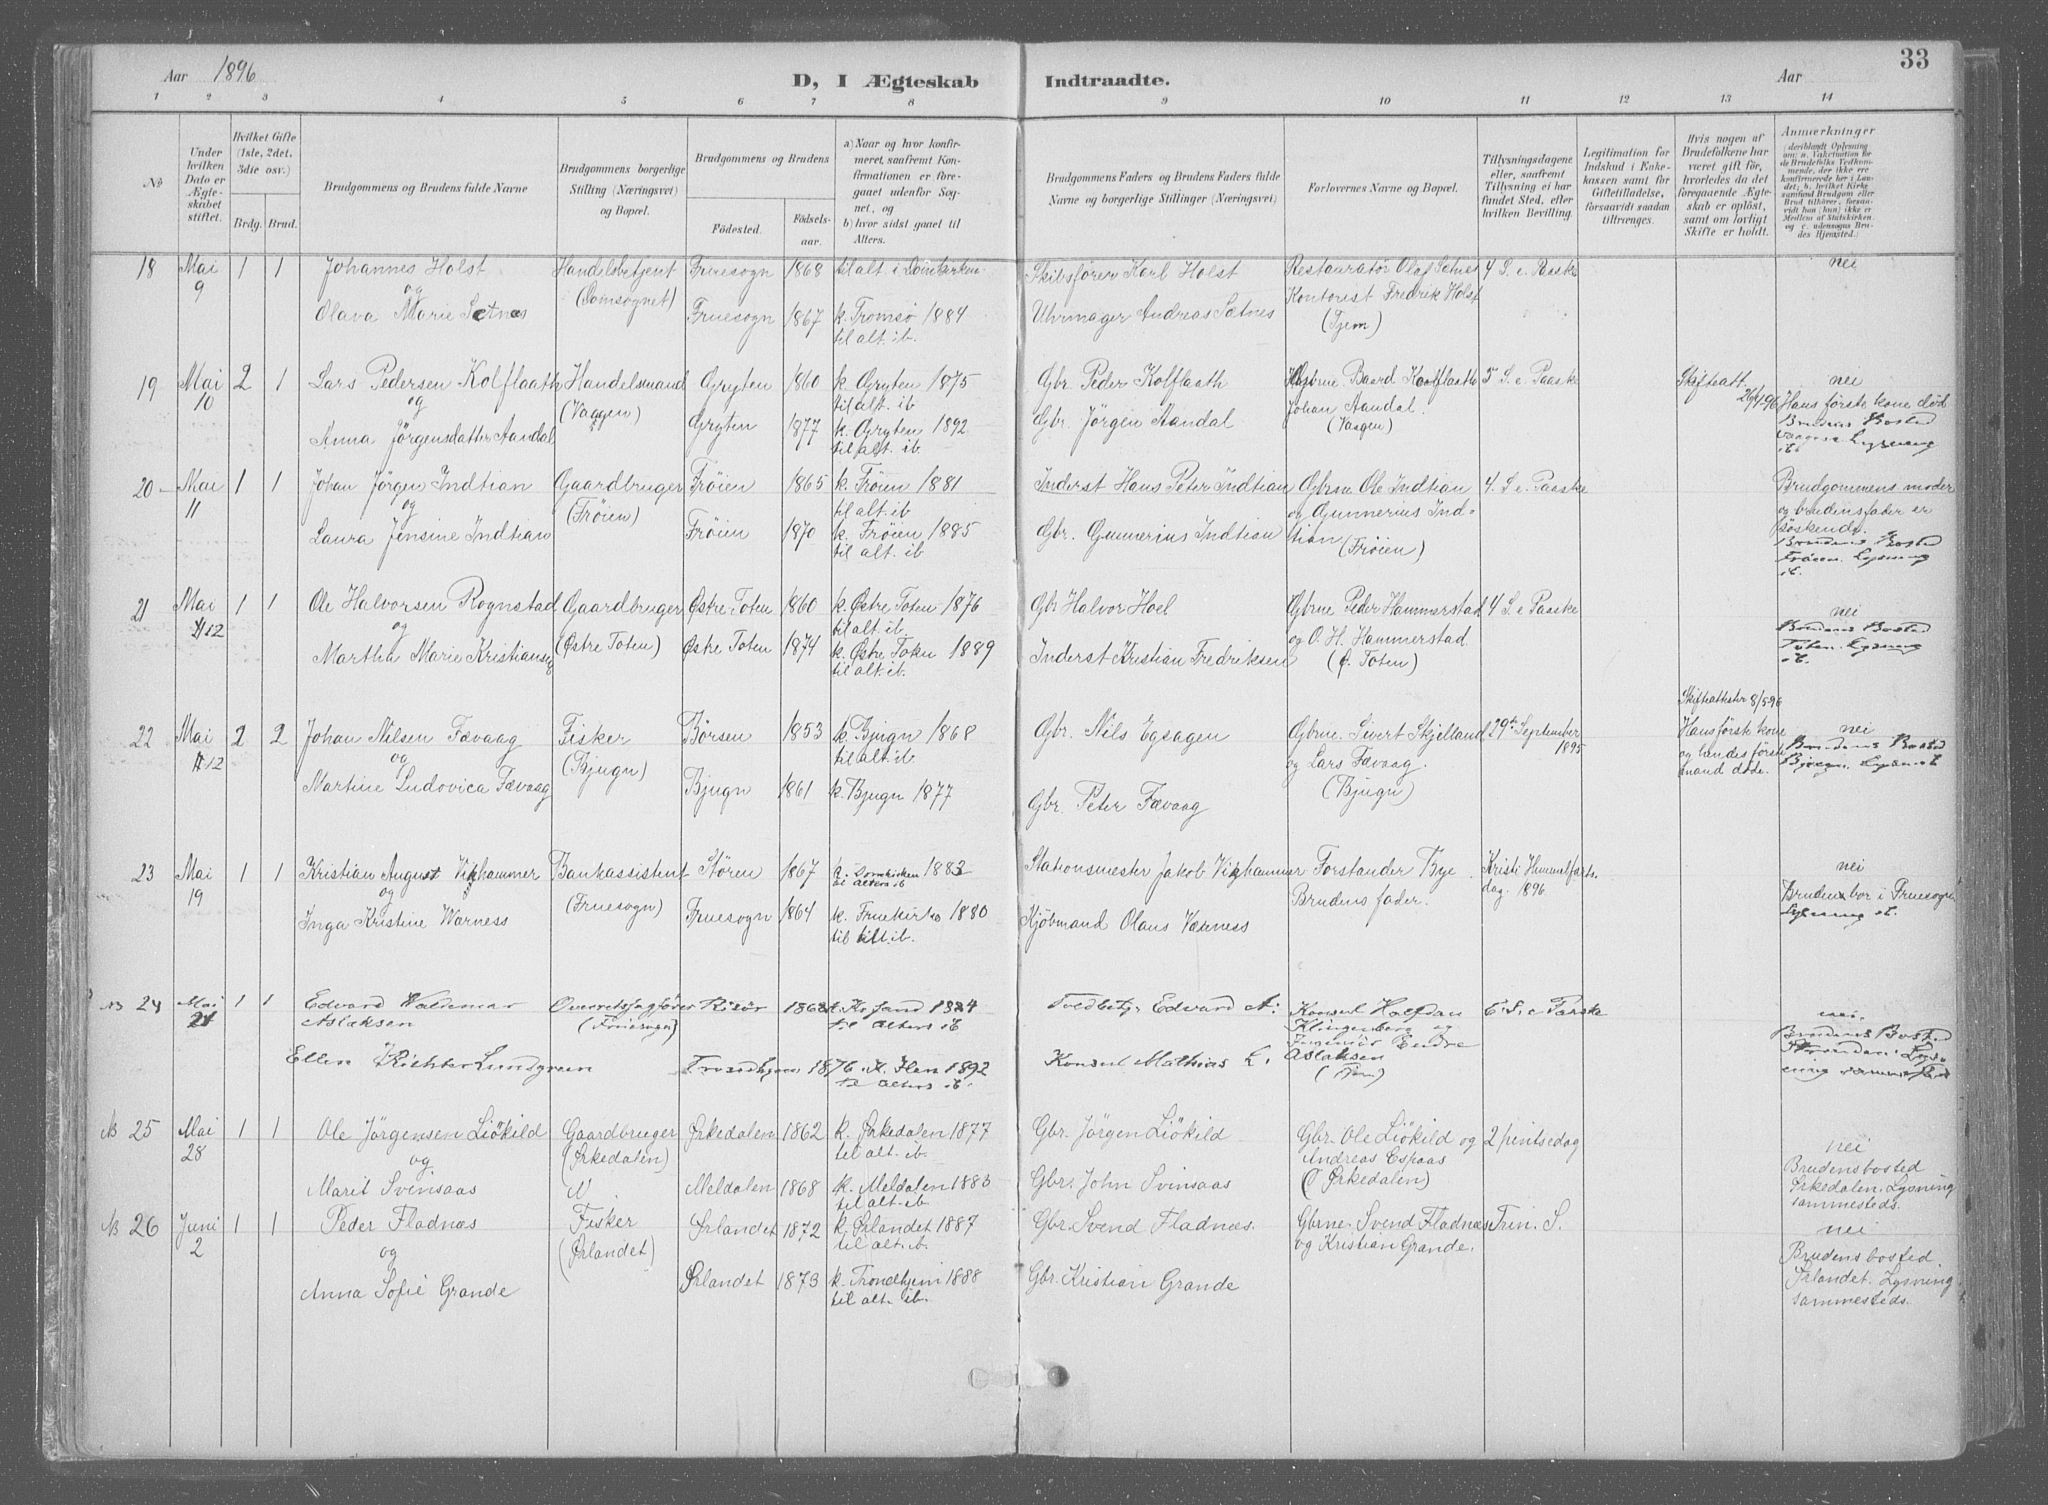 33
Aar 1896
D, I Ægteskab
Indtraadte.
Aar
1 2 3 4 5 6 7 8 9 10 11 12 13 14
№
Under hvilken Dato er Ægteskabet stiftet.
Hvilket Gifte (1ste, 2det, 3die osv.)
Brdg. Brud.
Brudgommens og Brudens fulde Navne
Brudgommens borgerlige Stilling (Næringsvei) og Bopæl.
Brudgommens og Brudens
Födested.
Födselsaar.
a) Naar og hvor konfirmeret, saafremt Konfirmationen er foregaaet udenfor Sognet, og
b) hvor sidst gaaet til Alters.
Brudgommens Faders og Brudens Faders fulde Navne og borgerlige Stillinger (Næringsvei)
Forlovernes Navne og Bopæl.
Tillysningsdagene eller, saafremt Tillysning ei har fundet Sted, efter hvilken Bevilling.
Legitimation for Indskud i Enkekassen samt for Giftetilladelse, forsaavidt saadan tiltrænges.
Hvis nogen af Brudefolkene har været gift før, hvorledes da det foregaaende Ægteskab er oplöst, samt om lovligt Skifte er holdt.
Anmerkninger
18 Mai 9 1 1 Johannes Holst Handelsbetjent Fruesogn 1868 til alt. i Domkirken Skibsfører Karl Holst Restauratør Olaf Sætnes 4 S. e. Paaske nei
og (Domsognet) Kontorist Fredrik Holst
Olava Marie Sætnes Fruesogn 1867 k. Tromsø 1884 Uhrmager Andreas Sætnes (Tjem)
til alt. ib.
19 Mai 10 2 1 Lars Pedersen Kolflaath Handelsmand Gryten 1860 k. Gryten 1875 Gbr Peder Kolflaath Gbrne Baard Kolflaath 5 S. e. Paaske Skifteatt. nei
og (Vaagen) til alt. ib Johan Aandal. 26/4 96 Hans første kone død
Anna Jörgensdatter Aandal Gryten 1877 k. Gryten 1892 Gbr. Jörgen Aandal (Vaagen) Brudens Bosted
til alt. ib. Vaagen. Lysning ib.
20 Mai 11 1 1 Johan Jörgen Indtian Gaardbruger Fröien 1865 k. Fröien 1881 Inderst Hans Peter Indtian Gbrne Ole Indtian 4. S. e. Paaske Brudgommens moder
og (Fröien) til alt. ib og Gunnerius Ind- og brudens fader er
Laura Jensine Indtian Fröien 1870 k. Fröien 1885 Gbr. Gunnerius Indtian tian (Fröien) söskende.
til alt. ib Brudens Bosted
Fröien. Lysning ib.
21 Mai 12 1 1 Ole Halvorsen Rognstad Gaardbruger Østre Toten 1860 k. Østre Toten 1876 Gbr Halvor Hoel Gbrne Peder Hammerstad 4 S. e Paaske nei
og (Østre Toten) til alt. ib. og O. H. Hammerstad. Brudens Bosted
Martha Marie Kristiansen Østre Toten 1874 k. Østre Toten 1889 Inderst Kristian Fredriksen (Ø. Toten) Toten. Lysning ib.
til alt. ib.
Skifteattester 8/5-96
22 Mai 12 2 2 Johan Nilsen Fævaag Fisker Börsen 1853 k. Bjugn 1868 Gbr. Nils Egsagen Gbrne. Sivert Skjelland 29de September 1895 Hans første kone nei
og (Bjugn) til alt. ib og Lars Fævaag. og hendes første Brudens Bosted
Martine Ludovica Fævaag Bjugn 1861 k. Bjugn 1877 Gbr. Peter Fævaag (Bjugn) mand døde. Bjugn. Lysn. ib
23 Mai 19 1 1 Kristian August Vikhammer Bankassistent Stören 1867 k. Domkirken 1883 Stationsmester Jakob Vikhammer Forstander Bye Kristi Himmelfarts- nei
og (Fruesogn) til alters ib Brudens fader. dag. 1896 Bruden bor i Fruesogn
Inga Kristine Værness Fruesogn 1864 k. Fruekirke 1880 Kjöbmand Olaus Værness Lysning ib.
til alt. ib.
NB 24 Mai 21 1 1 Edvard Waldemar Overretssagfører Risör 1868 k. Krsand 1884 Toldbetj. Edvard A. Konsul Halfdan 6. S. e Paaske nei.
Aslaksen (Fruesogn) til alters ib Klingenberg og Brudens Bosted
Ingeniör Endre
Ellen Richter Lundgreen Trondhjem 1876 k. Hlen 1892 Konsul Mathias L. Aslaksen Trondhjem. Lys-
til alters ib. (Tjem) ning sammesteds
NB 25 Mai 28 1 1 Ole Jörgensen Liökild Gaardbruger Ørkedalen 1862 k. Ørkedalen 1877 Gbr. Jörgen Liökild Gbr. Ole Liökild og 2 pintsedag nei
og (Ørkedalen) til alt. ib. Andreas Espaas Brudens bosted
Marit Svinsaas N Meldalen 1868 k. Meldalen 1883 Gbr. John Svinsaas (Ørkedalen) Ørkedalen. Lysning
til alt. ib. sammesteds.
NB 26 Juni 2 1 1 Peder Fladnæs Fisker Ørlandet 1872 k. Ørlandet 1887 Gbr. Svend Fladnæs. Gbrne. Svend Fladnæs Trin. S. nei
og (Ørlandet) til alt. ib. og Kristian Grande. Brudens bosted
Anna Sofie Grande Ørlandet 1873 k. Trondhjem 1888 Gbr. Kristian Grande Ørlandet. Lysning
til alt. ib. sammesteds.